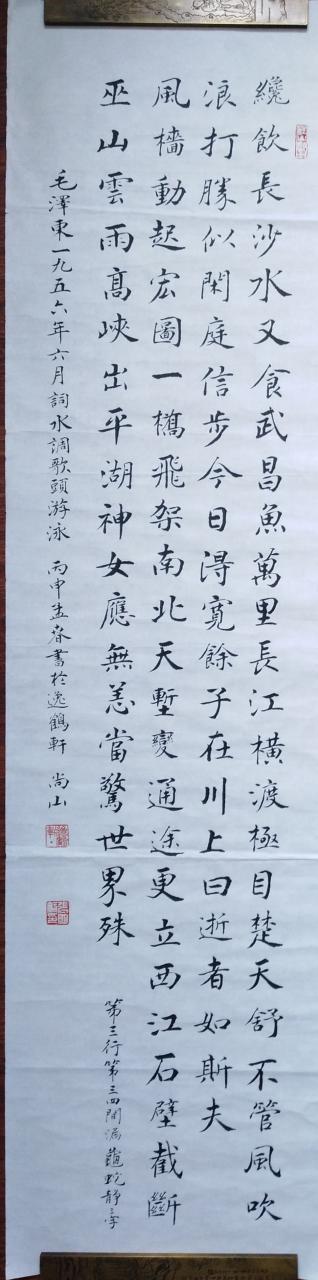 纔飲長沙水又食武昌魚萬里長江橫渡極目楚天舒不管風吹
浪打勝似閑庭信步今日淂寬餘子在川上曰逝者如斯夫
風檣動起宏圖一橋飛架南北天塹變通途更立西江石壁截斷
巫山雲雨高峽出平湖神女應無恙當驚世界殊
第三行第三四間漏龜蛇靜三字
毛澤東一九五六年六月詞水調歌頭游泳 丙申孟春書於逸鶴軒 尚山